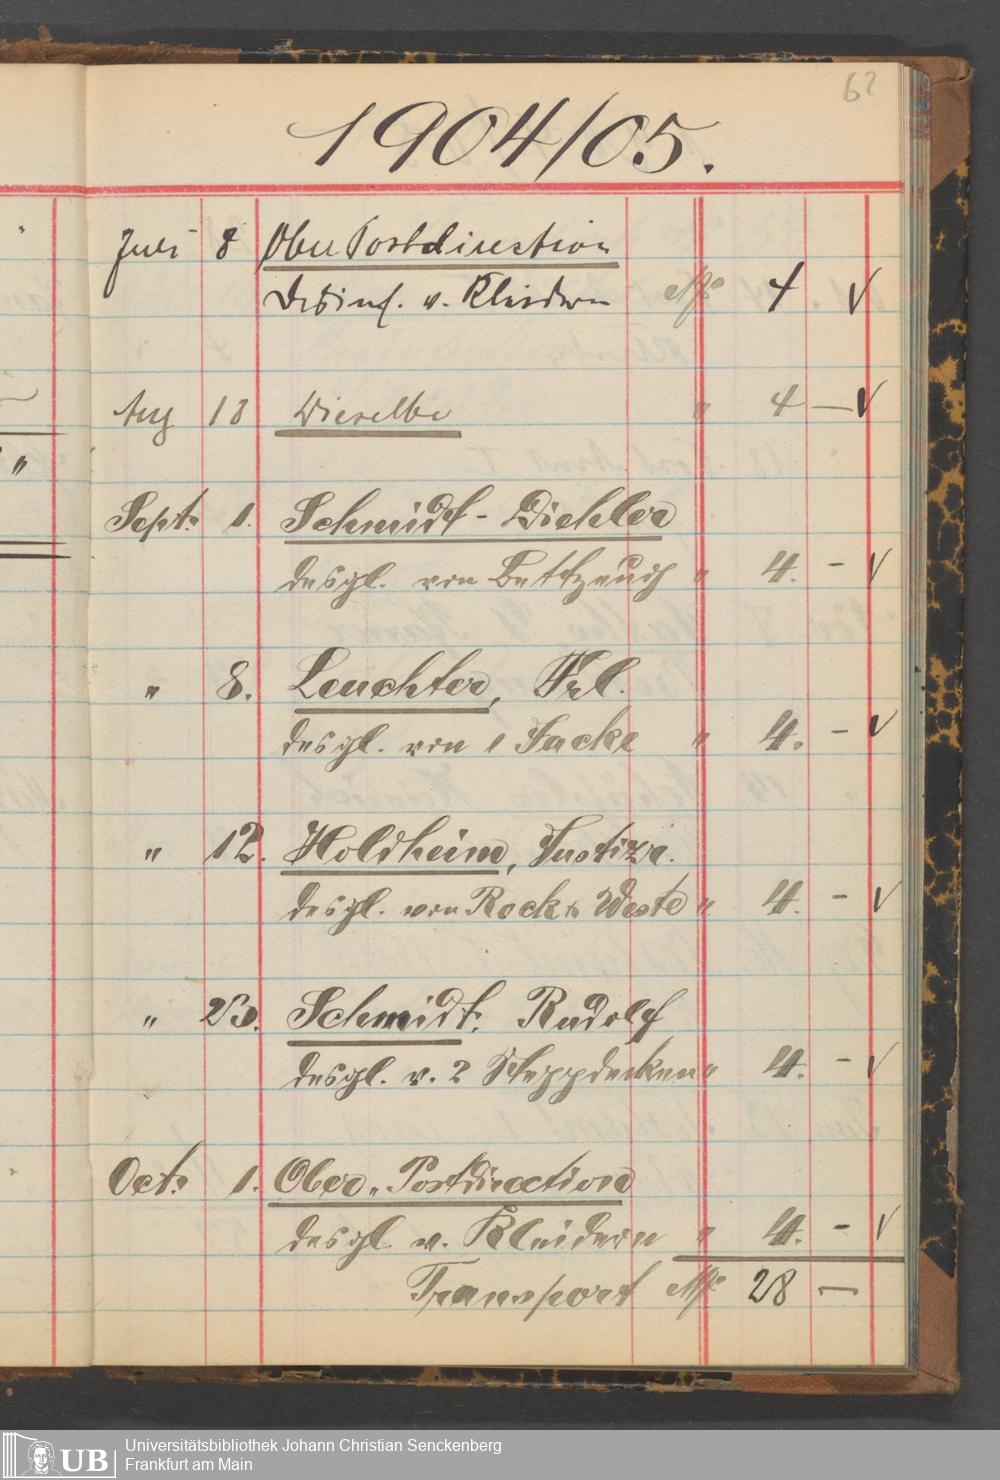 62
1904/05.
Juli 8 Ober Postdirection
Desinf. v. Kleidern Mk 4 √
Aug 18 Dieselbe " 4 — √
Sept. 1. Schmidt - Diehler
desgl. von Bettzeug " 4. - √
" 8. Leuchter, Frl.
desgl. von 1 Jacke " 4. - √
" 12. Holdheim, Justizr.
desgl. von Rock & Weste " 4. - √
" 23. Schmidt, Rudolf
desgl. v. 2 Steppdecken " 4. - √
Oct. 1. Ober-Postdirection
desgl v. Kleidern " 4. - √
Transport Mk 28 —
UB
Universitätsbibliothek Johann Christian Senckenberg
Frankfurt am Main